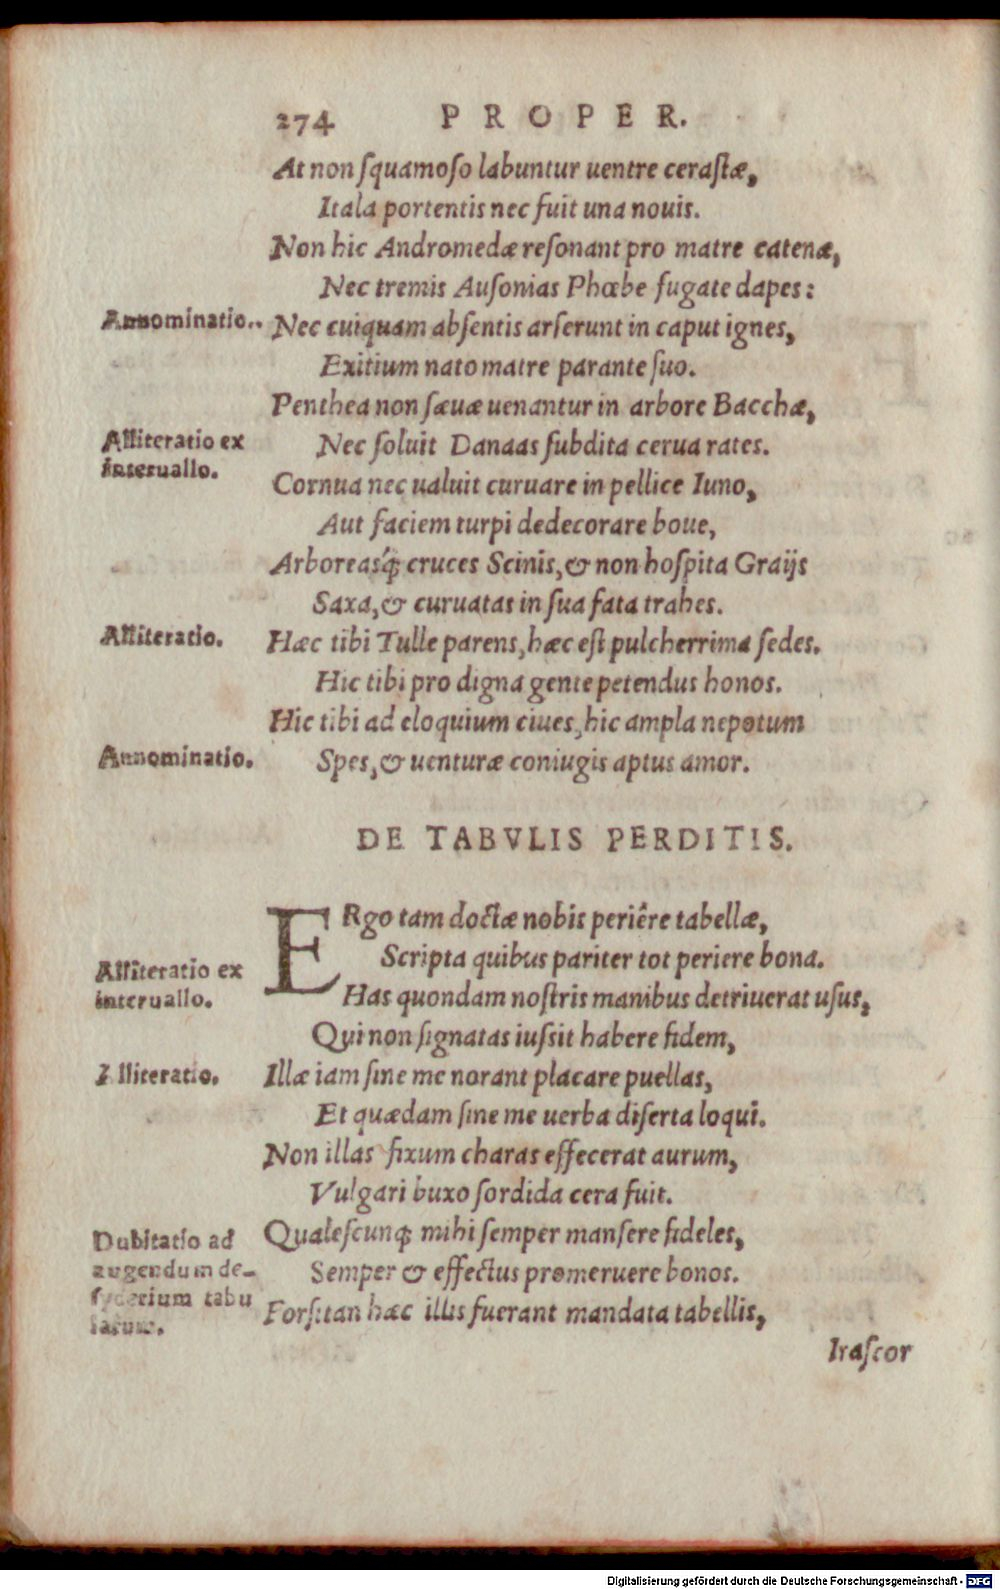 274 PROPER.
At non ſquamoſo labuntur uentre ceraſtæ,
Itala portentis nec fuit una nouis.
Non hic Andromedæ reſonant pro matre catenæ,
Nec tremis Auſonias Phœbe fugate dapes:
Annominatio.
Nec cuiquam abſentis arſerunt in caput ignes,
Exitium nato matre parante ſuo.
Penthea non ſæuæ uenantur in arbore Bacchæ,
Alliteratio ex
interuallo.
Nec ſoluit Danaas ſubdita cerua rates.
Cornua nec ualuit curuare in pellice Iuno,
Aut faciem turpi dedecorare boue,
Arboreasq́; cruces Scinis, & non hoſpita Graijs
Saxa, & curuatas in ſua fata trabes.
Alliteratio.
Hæc tibi Tulle parens, hæc eſt pulcherrima ſedes.
Hic tibi pro digna gente petendus honos.
Hic tibi ad eloquium ciues, hic ampla nepotum
Annominatio.
Spes, & uenturæ coniugis aptus amor.
DE TABVLIS PERDITIS.
ERgo tam doctæ nobis periêre tabellæ,
Scripta quibus pariter tot periere bona.
Alliteratio ex
interuallo.
Has quondam noſtris manibus detriuerat uſus,
Qui non ſignatas iuſsit habere fidem,
Alliteratio.
Illæ iam ſine me norant placare puellas,
Et quædam ſine me uerba diſerta loqui.
Non illas fixum charas effecerat aurum,
Vulgari buxo ſordida cera fuit.
Dubitatio ad
augendum de-
ſyderium tabu
larum.
Qualeſcunq; mihi ſemper manſere fideles,
Semper & effectus promeruere bonos.
Forſitan hæc illis fuerant mandata tabellis,
Iraſcor
Digitalisierung gefördert durch die Deutsche Forschungsgemeinschaft - DFG